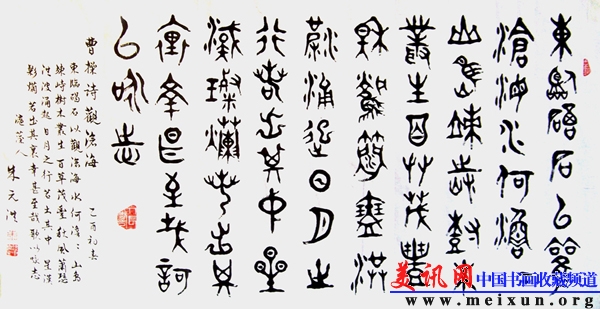 東臨碣石以觀
滄海水何澹=
山島竦峙樹木
叢生百草茂豐
秋風蕭瑟洪
波涌起日月之
行若出其中星
漢燦爛若出其
裏幸甚至哉歌
以咏志
曹操詩觀滄海 乙酉初春
東臨碣石以觀滄海水何澹=山島
竦峙樹木叢生百草茂豐秋風蕭瑟
洪波涌起日月之行若出其中星漢
爛若出其裏幸甚至哉歌以咏志
朱元
美讯网 中国书画收藏频道
www.meixun.org